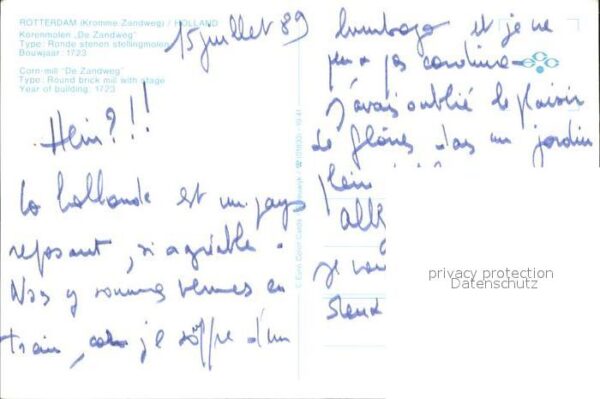 ROTTERDAM (Kromme Zandweg) / HOLLAND
Korenmolen „De Zandweg"
Type: Ronde stenen stellingmolen
Bouwjaar: 1723
Corn-mill "De Zandweg"
Type: Round brick mill with stage
Year of building: 1723
15 juillet 89
Hein?!!!
La hollande est un pays
reposant, si agréable.
Nous y sommes venues en
train, je souffre d'un
lumbago et je ne
peux pas conduire.
J'avais oublié le plaisir
de flâner dans un jardin
plein
all
je vou
privacy protection
Datenschutz